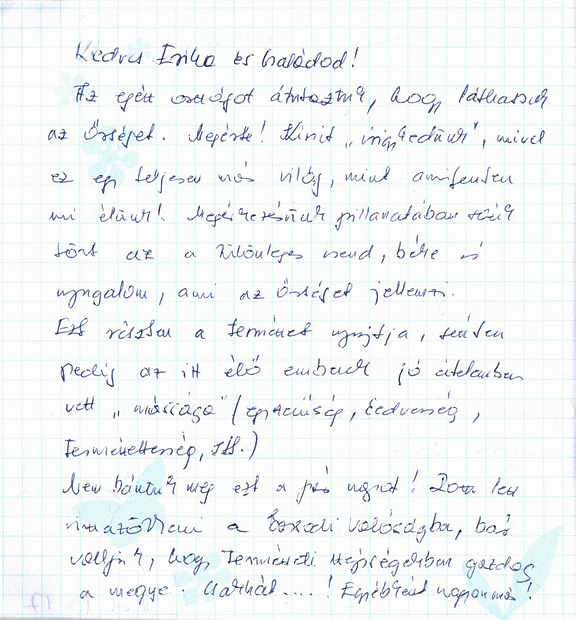 Kedves Erika és családod!
Az egész országot átutaztuk, hogy láthassuk
az Őrséget. Megérte! Kicsit „irigykedünk", mivel
ez egy teljesen más világ, mint amifenten
mi élünk! Megérkezésünk pillanatában szívük
tört az a különleges csend, béke és
nyugalom, ami az Őrséget jellemzi.
Ezt részben a természet nyújtja, részben
pedig az itt élő emberek jó értelemben
vett „mássága" (egyszerűség, kedvesség,
természetesség, stb.)
Nem bántuk meg ezt a pár napot! Rossz lesz
visszazökkenni a borsodi valóságba, bár
valljuk, hogy természeti szépségekben gazdag
a megye. Csakhát....! Egyébként nagyon más!